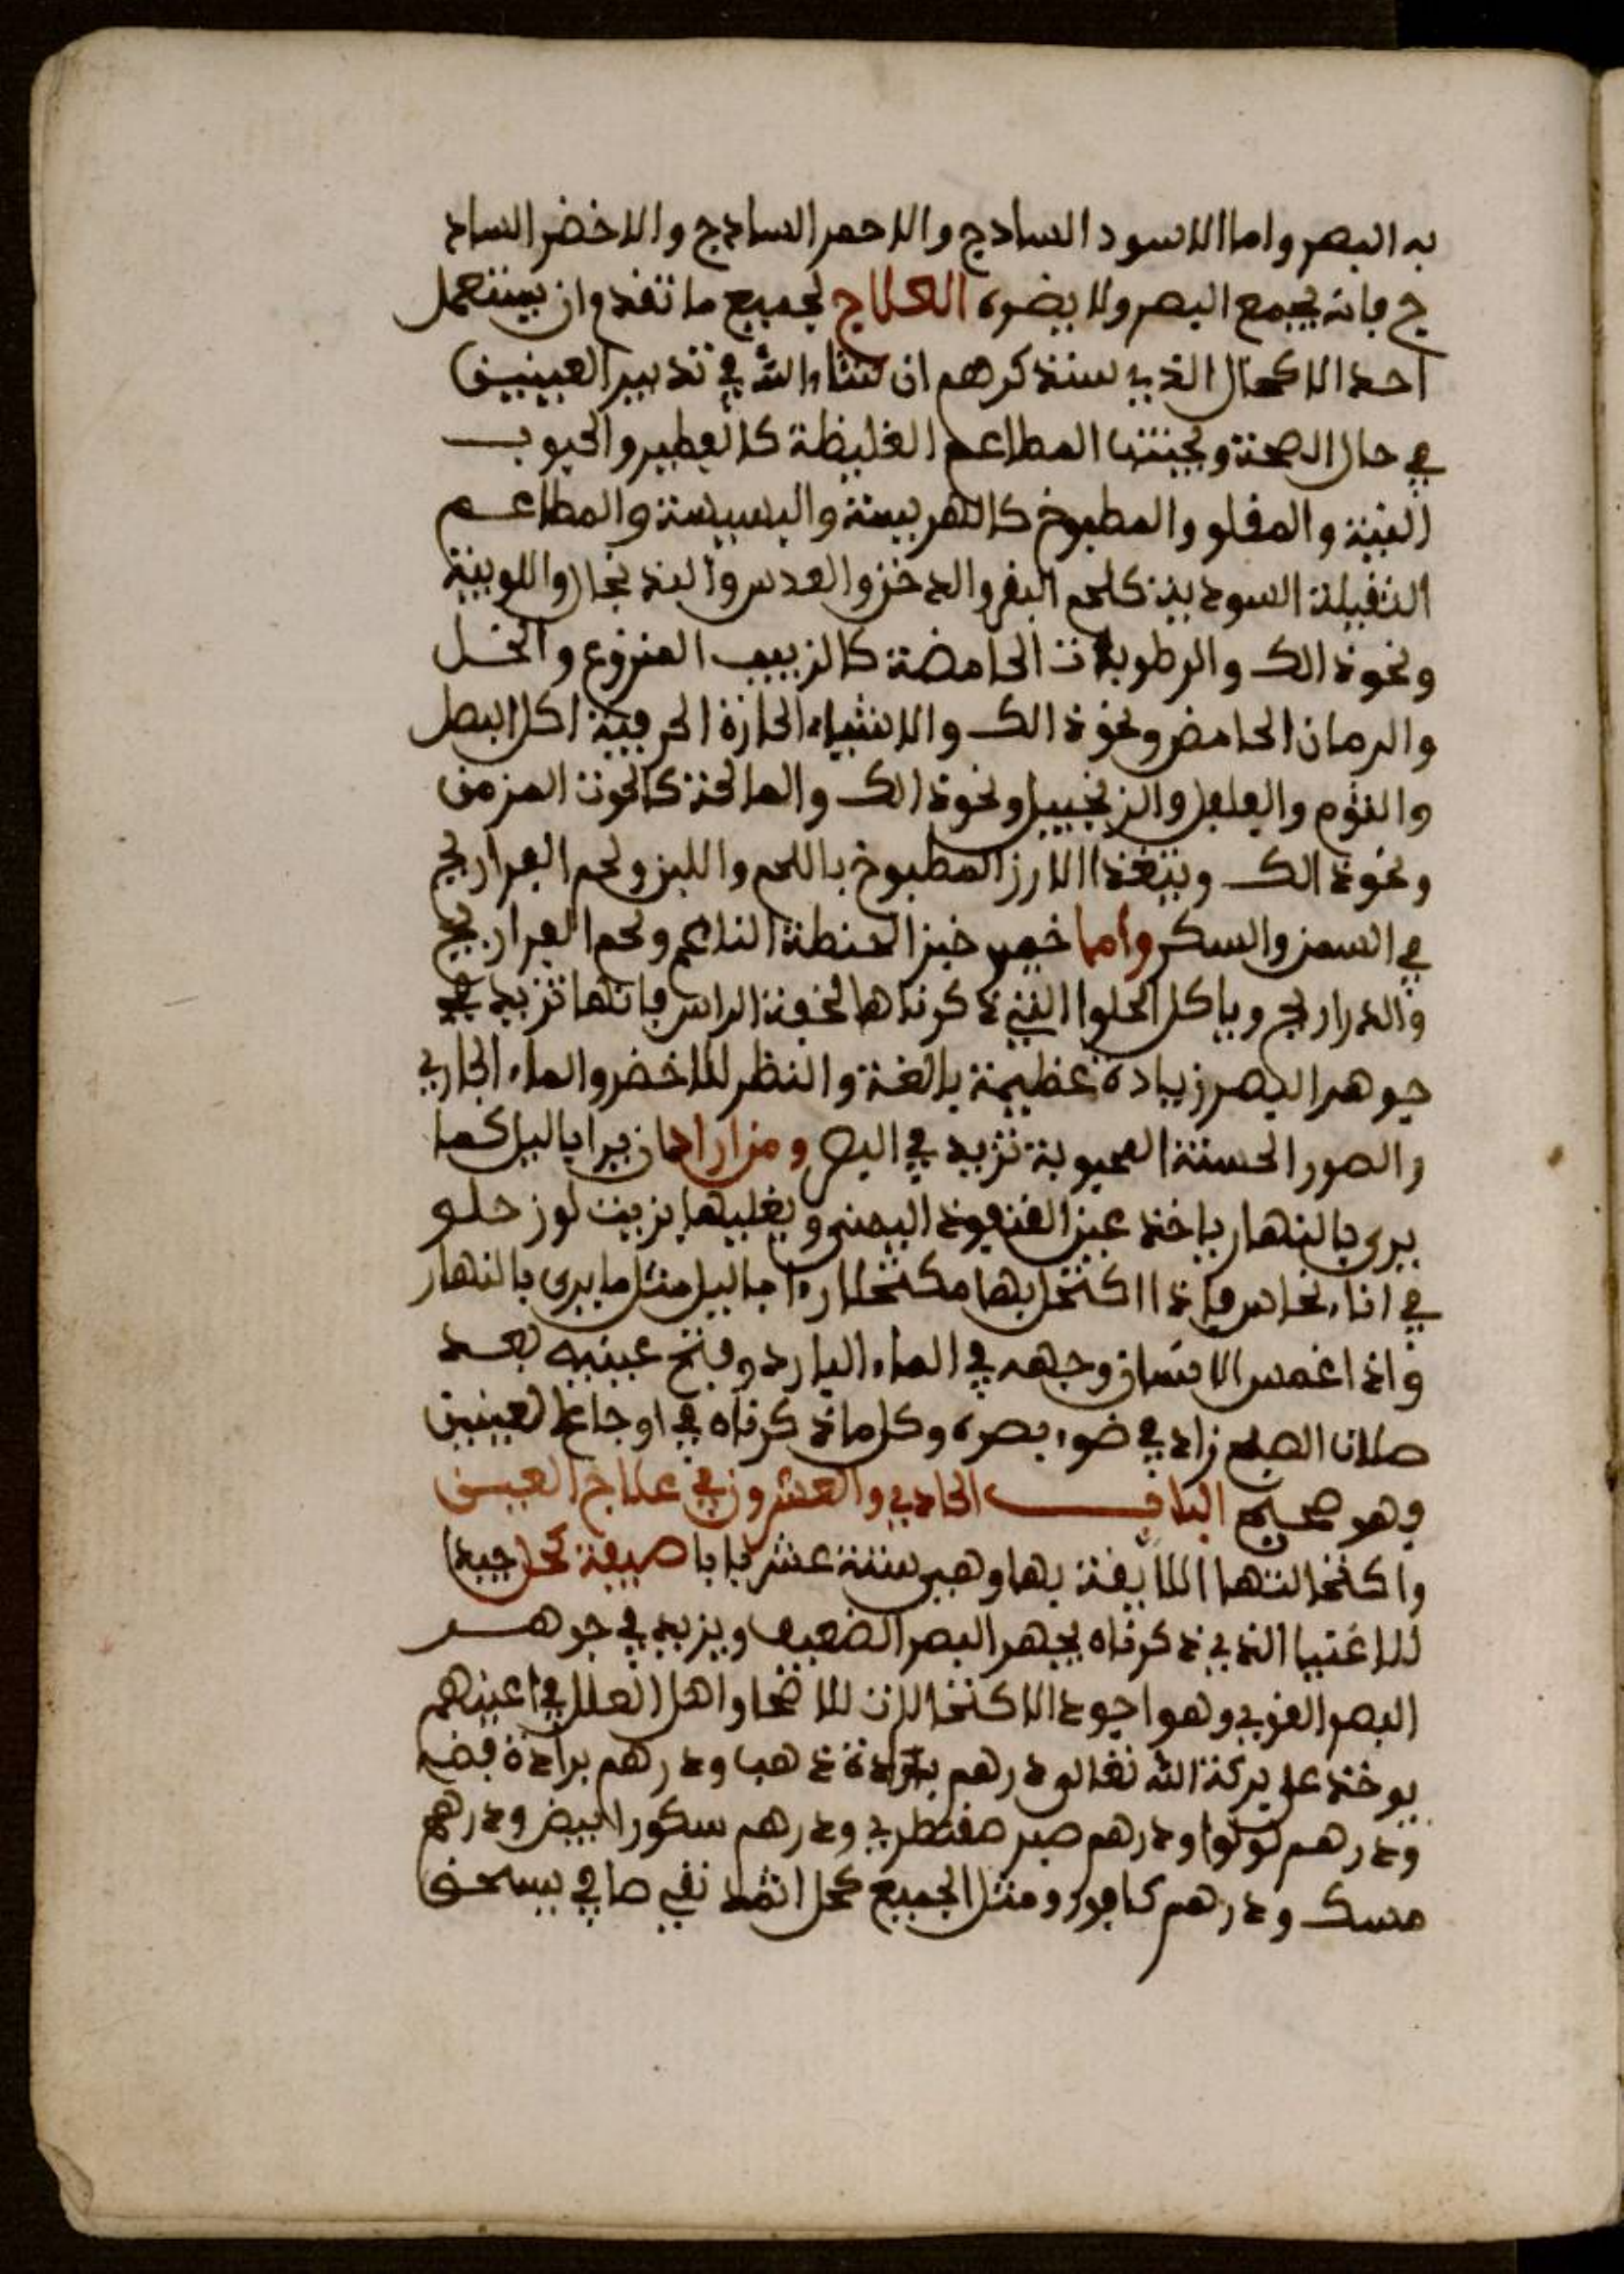 به البصر واما الاسود الساذج والاحمر الساذج والاخضر الساذ
ج فانه يجمع البصر ولا يضره العلاج لجميع ما تقدم ان يستعمل
احد الاكحال الذي سنذكرهم ان شاء الله في تدبير العينين
في حال الصحة ويجتنب المطاعم الغليظة كالفطير والحبوب
النية والمقلو والمطبوخ كالهريسة والبسيسة والمطاعم
الثقيلة السودية كلحم البقر والدخن والعدس والبدنجال واللوبية
ونحو ذالك والرطوبات الحامضة كالزبيب المنزوع والخل
والرمان الحامض ونحو ذالك والاشياء الحارة الحرفية اكل البصل
والثوم والفلفل والزنجبيل ونحو ذالك والمالحة كالحوت المزمن
ونحو ذالك ويتغذا الارز المطبوخ باللحم واللبن ولحم الفراريج
في السمن والسكر واما خمير خبز الحنطة الناعم ولحم الفراريج
والدراريج وياكل الحلوا التي ذكرناها لخفة الراس فانها تزيد في
جوهر البصر زيادة عظيمة بالغة والنظر للاخضر والماء الجاري
والصور الحسنة المحبوبة تزيد في البصر ومن اراد ان يرا باليل كما
يرى بالنهار ياخذ عين القنفوذ اليمنى ويغليها بزيت لوز حلو
في اناء نحاس فاذا اكتحل بها مكتحلا راا باليل مثل ما يرى بالنهار
واذا غمس الانسان وجهه في الماء البارد وفتح عينيه بعد
صلات الصبح زاد في ضوء بصره وكل ما ذكرناه في اوجاع العينين
وهو صحيح الباب الحادي والعشرون في علاج العين
واكتحالتها اللايقة بها وهي ستة عشر بابا صيفة كحل جيد
للاغنيا الذي ذكرناه يجهر البصر الضعيف ويزيد في جوهر
البصر القوي وهو اجود الاكتحالات للاضحا واهل العلل في اعينهم
يوخذ على بركة الله تعالى درهم برادة ذهب ودرهم برادة فضه
ودرهم لولوا ودرهم صبر صقطري ودرهم سكور ابيض ودرهم
مسك ودرهم كافور ومثل الجميع كحل اثمد نقي صافي يسحق